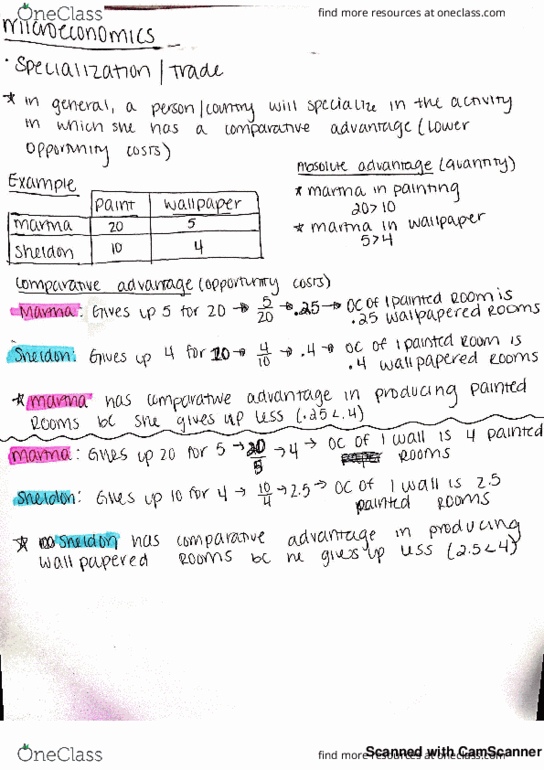 OneClass
find more resources at oneclass.com
Microeconomics
• Specialization / Trade
* in general, a person/country will specialize in the activity
in which she has a comparative advantage (lower
opportunity costs)
Absolute advantage (quantity)
* martha in painting
20>10
* martha in wallpaper
5>4
Example
paint wallpaper
martha 20 5
sheldon 10 4
comparative advantage (opportunity costs)
Martha: Gives up 5 for 20 → 5/20 → .25 → OC of 1 painted room is
.25 wallpapered rooms
Sheldon: Gives up 4 for 10 → 4/10 → .4 → OC of 1 painted room is
.4 wallpapered rooms
* martha has comparative advantage in producing painted
rooms bc she gives up less (.25<.4)
martha: Gives up 20 for 5 → 20/5 → 4 → OC of 1 wall is 4 painted
rooms
Sheldon: Gives up 10 for 4 → 10/4 → 2.5 → OC of 1 wall is 2.5
painted rooms
* Sheldon has comparative advantage in producing
wallpapered rooms bc he gives up less (2.5<4)
Scanned with CamScanner
OneClass
find more resources at oneclass.com